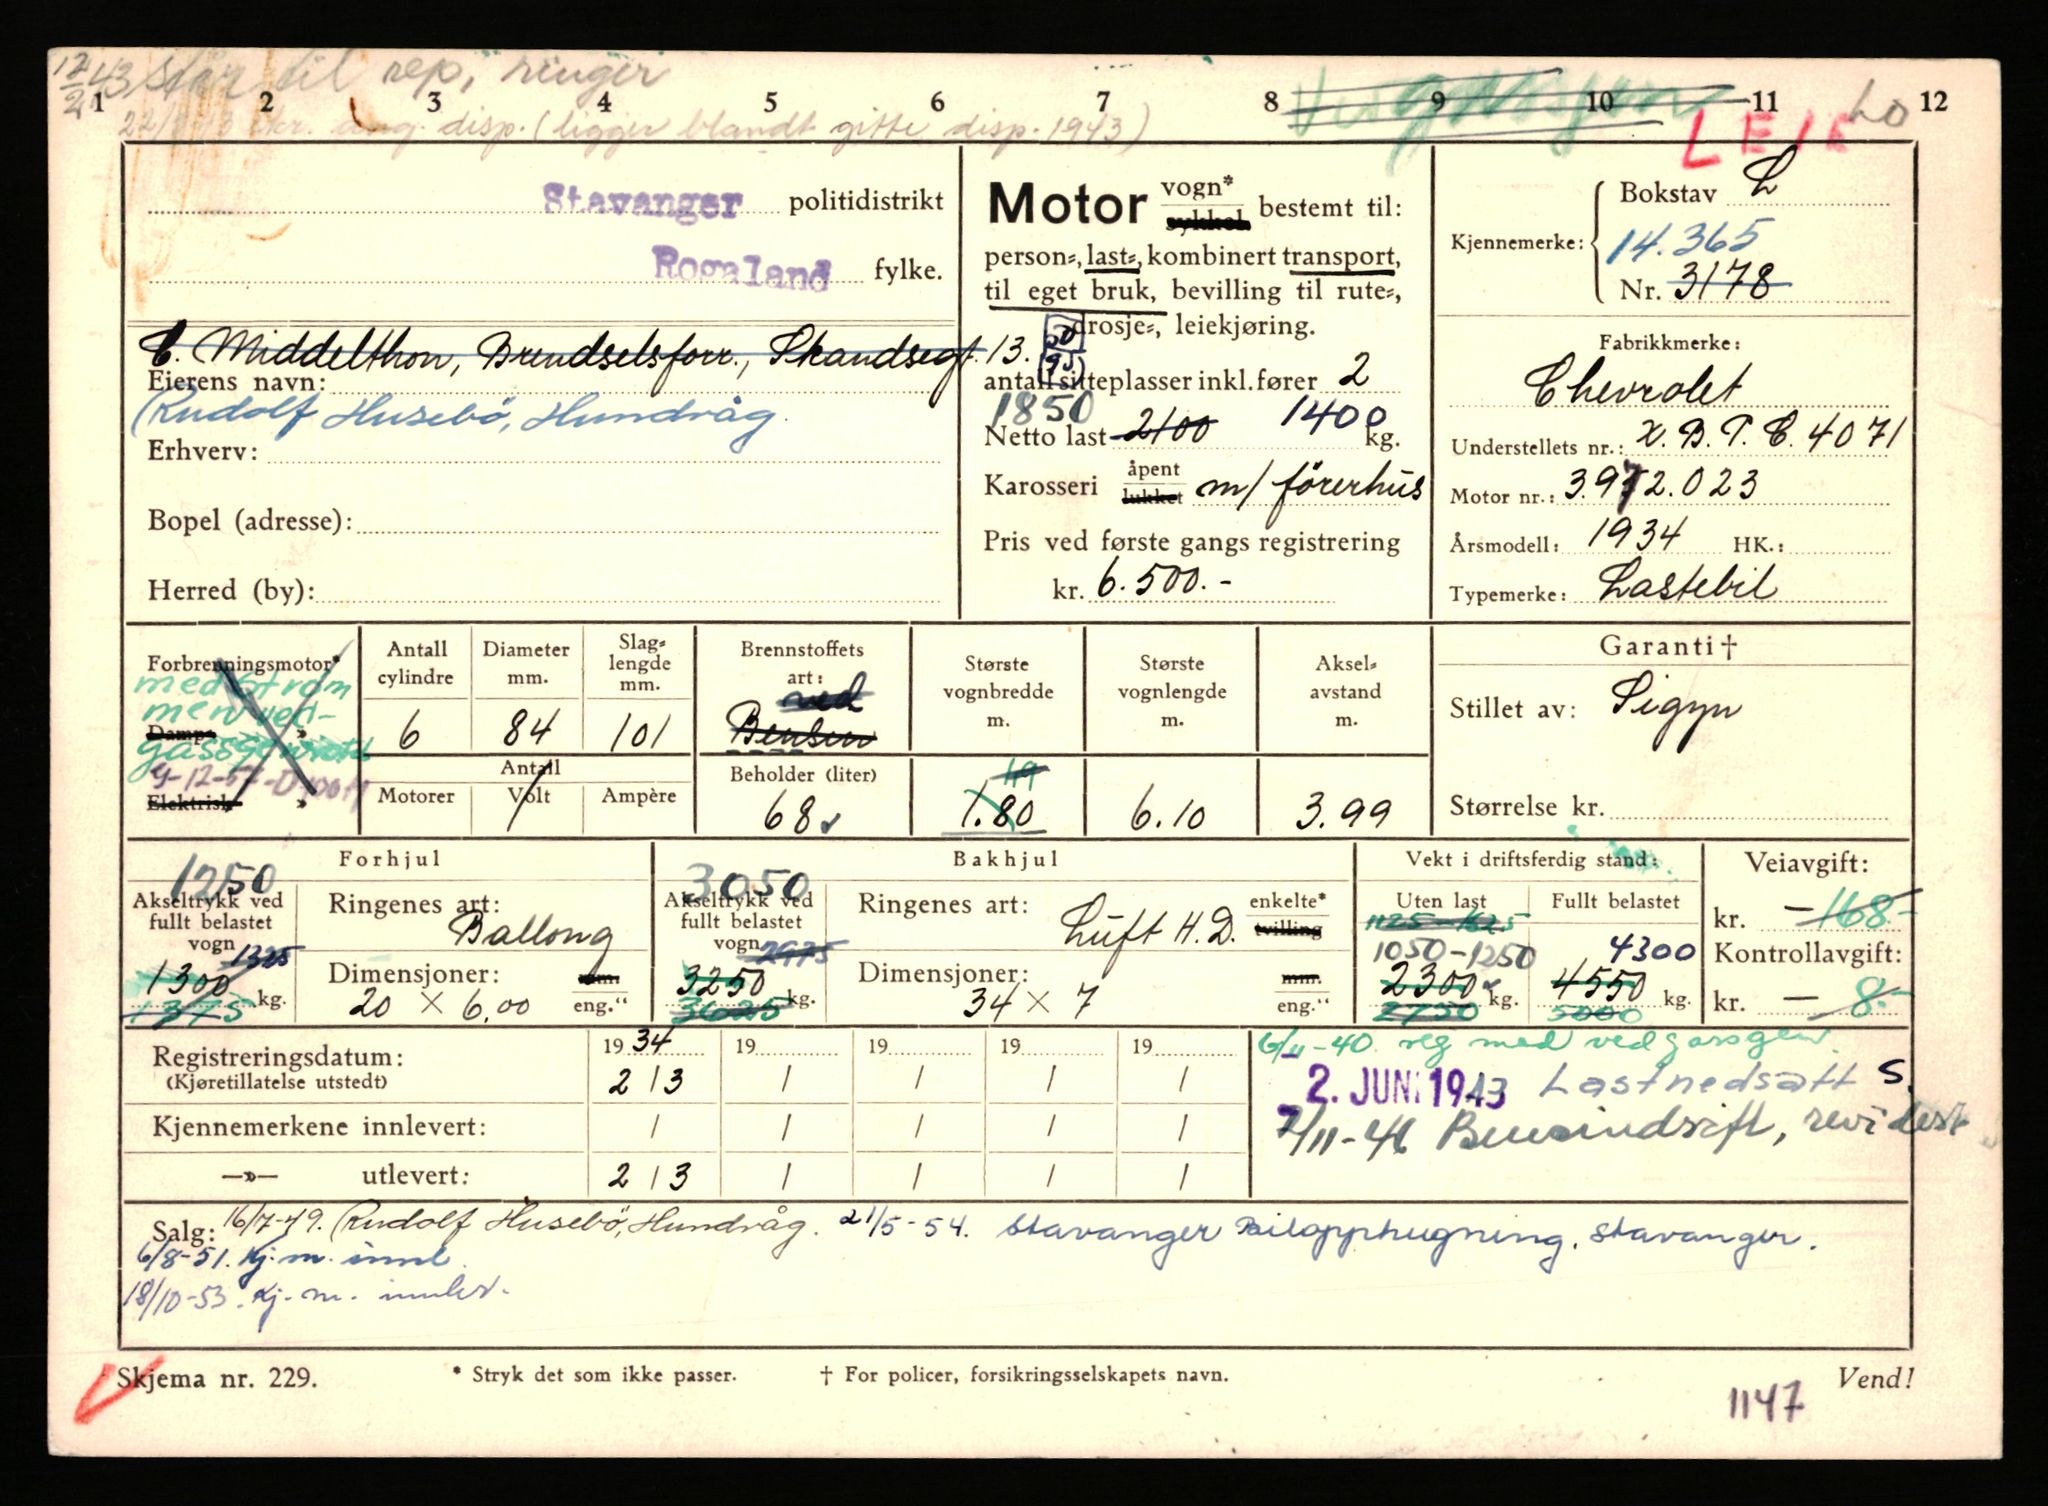 12/2 43 står til rep, ringer
1 2 3 4 5 6 7 8 9 10 11 12
disp. (ligger blandt gitte disp. 1943)
LEIE
Stavanger politidistrikt
Rogaland fylke.
C. Middelthon, Brendselsforr., Skandsegt. 13.
Eierens navn:
Rudolf Husebö, Hundvåg.
Erhverv:
Bopel (adresse):
Herred (by):
Motor vogn* sykkel bestemt til:
person-, last-, kombinert transport,
til eget bruk, bevilling til rute-,
drosje-, leiekjøring.
antall sitteplasser inkl. fører 2
1850
Netto last 2100 1400 kg.
Karosseri åpent lukket m/ förerhus
Pris ved første gangs registrering
kr. 6.500.-
Kjennemerke: Bokstav L
14.365
Nr. 3178
Fabrikkmerke:
Chevrolet
Understellets nr.: X. B. T. C. 4071
Motor nr.: 3.972.023
Årsmodell: 1934 HK.:
Typemerke: Lastebil
Forbrenningsmotor*
Damp- »
Elektrisk »
Antall cylindre 6
Diameter mm. 84
Slag-lengde mm. 101
Antall
Motorer Volt Ampère
Brennstoffets art: ved
Bensin
Beholder (liter) 68
Største vognbredde m.
1.80
Største vognlengde m.
6.10
Aksel-avstand m.
3.99
Garanti †
Stillet av: Sigyn
Størrelse kr.
Forhjul
1250
Akseltrykk ved fullt belastet vogn 1325
1300 kg.
1375
Ringenes art: Ballong
Dimensjoner: mm.
20 × 6,00 eng."
Bakhjul
3050
Akseltrykk ved fullt belastet vogn 2975
3250 kg.
3625
Ringenes art: Luft H.D. enkelte* tvilling
Dimensjoner: mm.
34 × 7 eng."
Vekt i driftsferdig stand:
Uten last Fullt belastet
1125-1625
1050-1250 4300
2300 kg. 4550 kg.
2750 5000
Veiavgift:
kr. - 168.-
Kontrollavgift:
kr. - 8.-
Registreringsdatum: 1934 19 19 19 19
(Kjøretillatelse utstedt) 2 / 3 / / / /
Kjennemerkene innlevert: / / / / /
—»— utlevert: 2 / 3 / / / /
6/11-40. reg med vedgassgen.
2. JUNI 1943 Lastnedsatt S.
7/11-46 Bensindrift, revidert
Salg: 16/7-49. Rudolf Husebö, Hundvåg. 21/5-54. Stavanger Bilopphugning. Stavanger.
6/8-51. Kj. m. innl.
18/10-53. Kj. m. innlev.
Skjema nr. 229. * Stryk det som ikke passer. † For policer, forsikringsselskapets navn. Vend!
1147